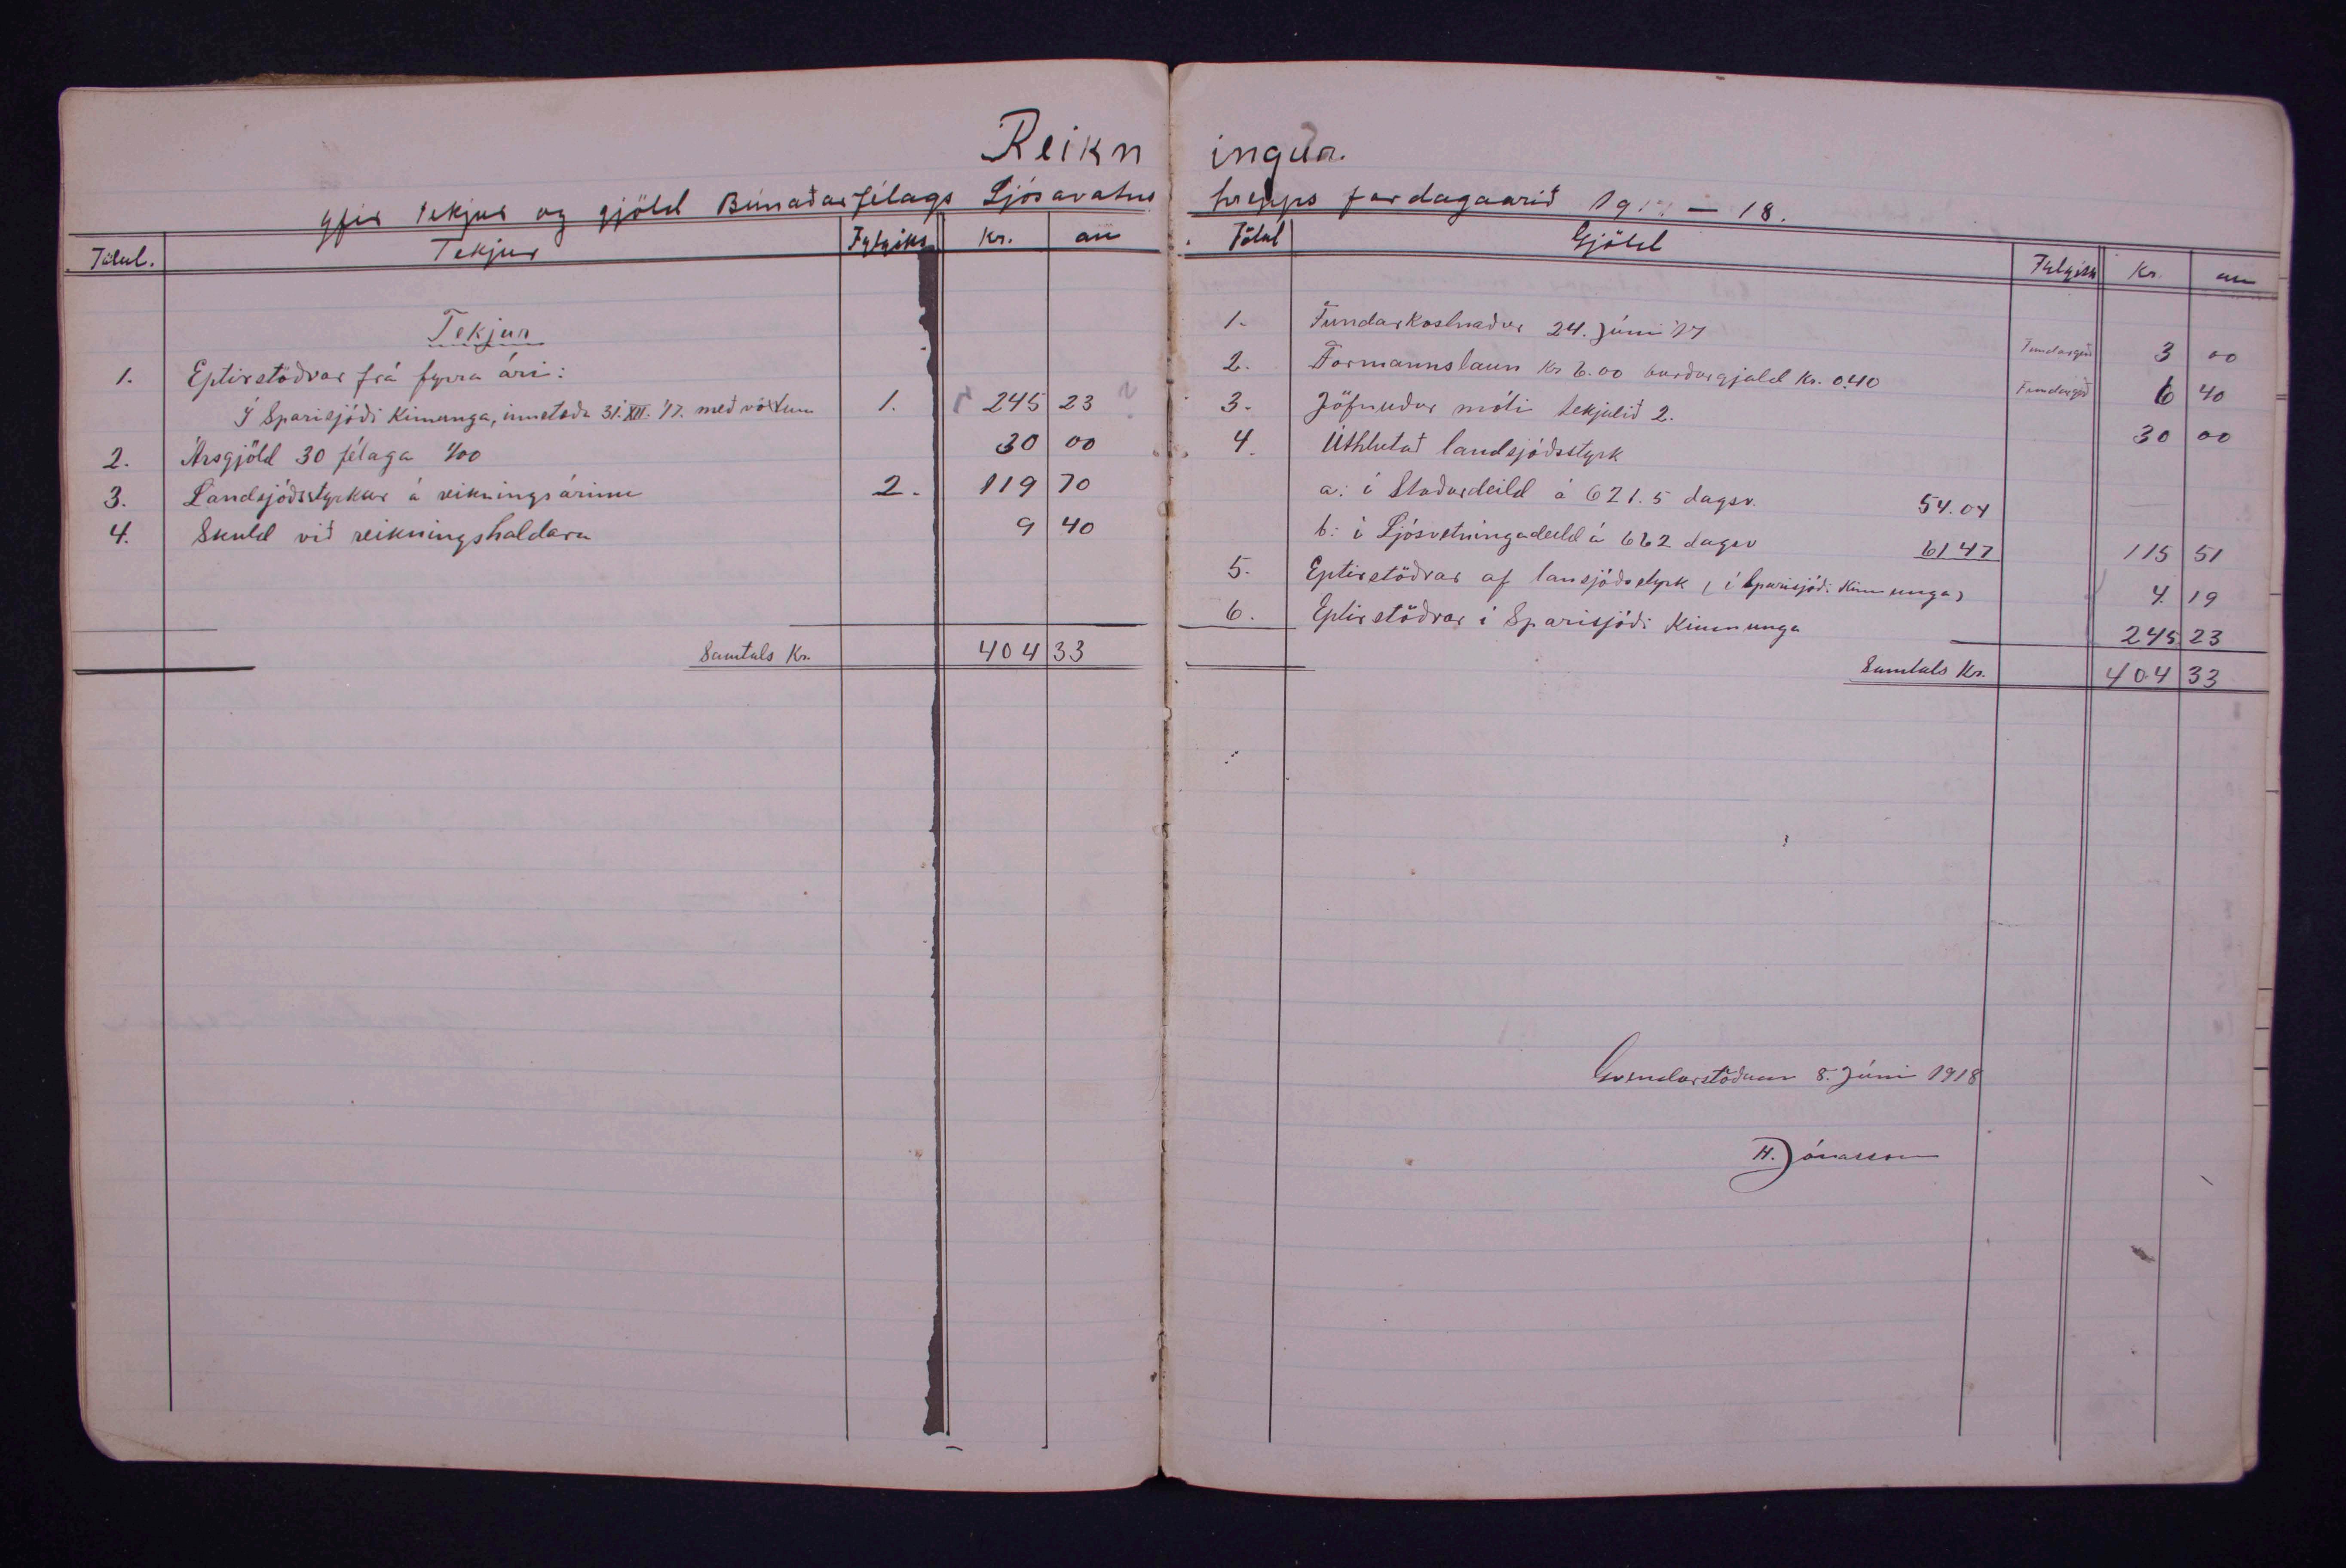 Reikningur.
yfir tekjur og gjöld Búnaðarfélags Ljósavatns hrepps fardagaárið 1917 — 18.
Tölul. Tekjur Fylgisk Kr. au
Tekjur
1. Eptirstöðvar frá fyrra ári:
Í Sparisjóði Kinnunga, innstæða 31. XII. '17. með vöxtum 1. 245 23
2. Ársgjöld 30 félaga 1/00 30 00
3. Landsjóðsstyrkur á reikningsárinu 2. 119 70
4. Skuld við reikningshaldara 9 40
Samtals Kr. 404 33
Tölul Gjöld Fylgisk Kr. au
1. Fundarkostnaður 24. Júni '17 Fundargerð 3 00
2. Formannslaun kr 6.00 burðargjald kr. 0.40 Fundargerð 6 40
3. Jöfnuður móti tekjulið 2. 30 00
4. Úthlutað landsjóðsstyrk
a: í Staðardeild á 621.5 dagsv. 54.04
b: í Ljósvetningadeild á 662 dagsv 61 47 115 51
5. Eptirstöðvar af lansjóðsstyrk (í Sparisjóði Kinnunga) 4 19
6. Eptirstöðvar í Sparisjóði Kinnunga 245 23
Samtals Kr. 404 33
Gvendarstöðum 8. Júni 1918
H. Jónasson